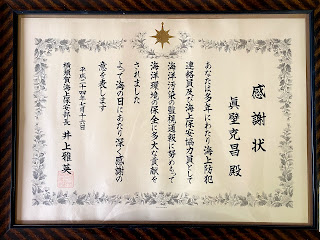 感謝状
眞壁克昌 殿
あなたは多年にわたり海上防犯
連絡員及び海上保安協力員として
海洋汚染の監視通報に努めもって
海洋環境の保全に多大な貢献を
されました
よって海の日にあたり深く感謝の
意を表します
平成二十四年七月十六日
横須賀海上保安部長 井上雅英